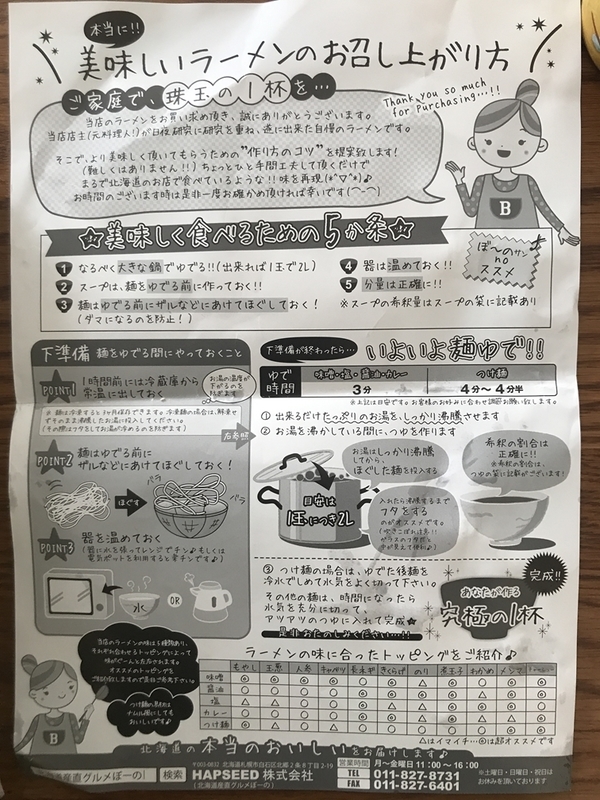 本当に!!
美味しいラーメンのお召し上がり方
ご家庭で、珠玉の1杯を…
Thank you so much
for Purchasing...!!
当店のラーメンをお買い求め頂き、誠にありがとうございます。
当店店主(元料理人!)が日夜研究に研究を重ね、遂に出来た自慢のラーメンです。
そこで、より美味しく頂いてもらうための"作り方のコツ"を提案致します!
(難しくはありません!!) ちょっとひと手間工夫して頂くだけで
まるで北海道のお店で食べているような!!味を再現(*ˇ▽ˇ*)♪
お時間のございます時は是非一度お確かめ頂ければ幸いです(^-^)
B
☆美味しく食べるための5か条☆
1 なるべく大きな鍋でゆでる!!(出来れば1玉で2L)
2 スープは、麺をゆでる前に作っておく!!
3 麺はゆでる前にザルなどにあけてほぐしておく!
(ダマになるのを防止!)
4 器は温めておく!!
5 分量は正確に!!
※スープの希釈量はスープの袋に記載あり
ぼ〜のサン
no
ススメ
下準備 麺をゆでる間にやっておくこと
POINT1 1時間前には冷蔵庫から
常温に出しておく
お湯の温度が
下がるのを
防ぎます
※麺は冷凍すると3ヶ月保存できます。冷凍麺の場合は、解凍せ
ずそのまま沸騰したお湯に投入してください。
(その際はフタをしてお湯が冷めるのを防ぎます)
右参照
POINT2 麺をゆでる前に
ザルなどにあけてほぐしておく!
ほぐす
パラ
パラ
POINT3 器を温めておく
(器に水を張ってレンジでチン♪もしくは
電気ポットを利用すると楽チンです♪)
水
OR
下準備が終わったら…
いよいよ麺ゆで!!
ゆで
時間
味噌・塩・醤油・カレー
つけ麺
3分
4分〜4分半
※上記は目安です。お客様のお好みに合わせ調節お願い致します。
① 出来るだけたっぷりのお湯を、しっかり沸騰させます
② お湯を沸かしている間に、つゆを作ります
お湯はしっかり沸騰
してから、
ほぐした麺を投入する
希釈の割合は
正確に!!
※希釈の割合は、
つゆの袋に記載がございます!
目安は
1玉につき2L
入れたら沸騰するまで
フタをする
のがオススメです。
(吹きこぼれ注意!!
ガラスのフタだと
中が見えて便利♪)
③ つけ麺の場合は、ゆでた後麺を
冷水でしめて水気をよく切って下さい。
その他の麺は、時間になったら
水気を充分に切って、
アツアツのつゆに入れて完成☆
是非おたのしみください…!!
完成!!
あなたが作る
究極の1杯
当店のラーメンの味は5種類あり、
それぞれ合わせるトッピングによって
味がぐーんと左右されます。
オススメのトッピングを
ご紹介致しますので是非ご参考下さい。
ラーメンの味に合ったトッピングをご紹介♪
もやし
玉葱
人参
キャベツ
長ネギ
きくらげ
のり
煮玉子
わかめ
メンマ
味噌
醤油
塩
カレー
つけ麺
△はイマイチ…◎は超オススメです
B
北海道の本当のおいしいをお届けします♪
北海道産直グルメぼーの
検索
〒003-0832 北海道札幌市白石区北郷2条8丁目2-19
HAPSEED 株式会社
(北海道産直グルメぼーの)
営業時間 月〜金曜日 11:00〜16:00
TEL 011-827-8731
FAX 011-827-6401
※土曜日・日曜日・祝日は
お休みを頂いております